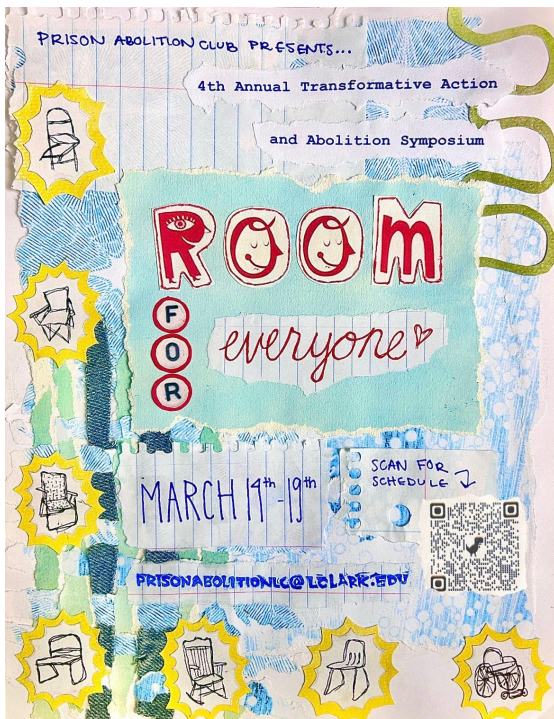 PRISON ABOLITION CLUB PRESENTS...
4th Annual Transformative Action
and Abolition Symposium
ROOM
FOR
everyone
MARCH 14th-19th
SCAN FOR
SCHEDULE
PRISONABOLITIONLC@LCLARK.EDU